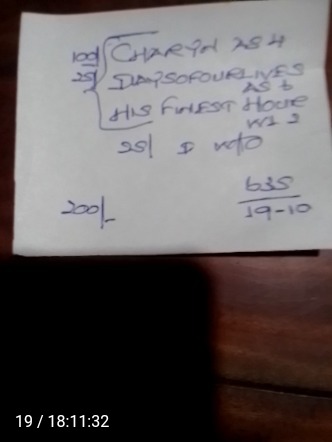 100 CHARYN AS 4
25 DAYSOFOURLIVES
AS 6
HIS FINEST HOUR
W1 2
25| D W/O
200/-
635
19-10
19 / 18:11:32